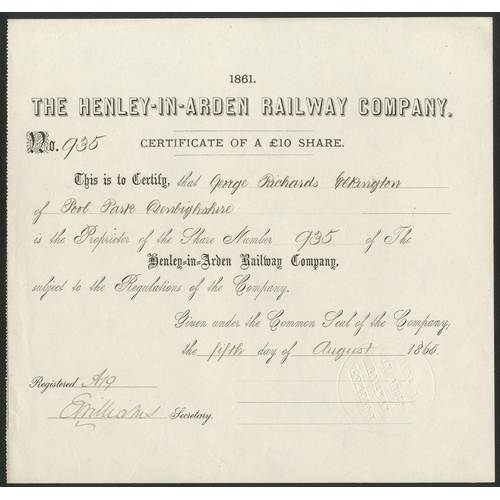 1861.
THE HENLEY-IN-ARDEN RAILWAY COMPANY.
No. 935
CERTIFICATE OF A £10 SHARE.
This is to Certify, that George Richards Elkington
of Pool Park Denbighshire
is the Proprietor of the Share Number 935 of The
Henley-in-Arden Railway Company,
subject to the Regulations of the Company.
Given under the Common Seal of the Company,
the fifth day of August 1865.
Registered A19
EWilliams Secretary.